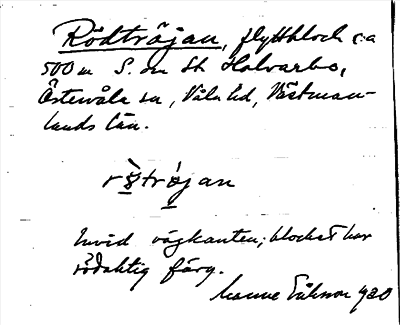 Rödtröjan, flyttblock ca
500 m S. om St Halvarbo,
Östervåla sn, Våla hd, Västman-
lands län.
rö̀tröjan
Invid vägkanten; blocket har
rödaktig färg.
Manne Eriksson 1920